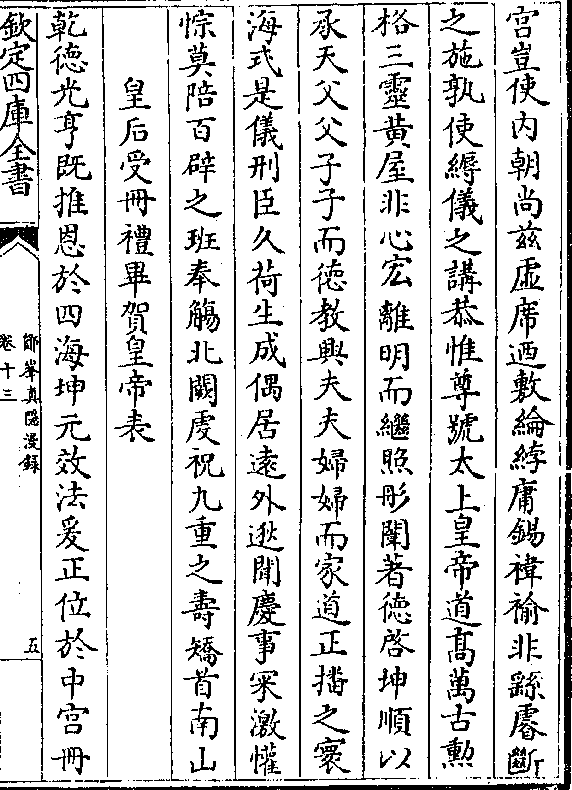 宫豈使内朝尚兹虚席迺敷綸綍庸錫褘褕非繇睿斷
之施孰使縟儀之講恭惟尊號太上皇帝道髙萬古勲
格三靈黄屋非心宏離明而繼照彤闈著德啓坤順以
承天父父子子而德教興夫夫婦婦而家道正播之寰
海式是儀刑臣久荷生成偶居逺外逖聞慶事冞激懽
悰莫陪百辟之班奉觴北闕虔祝九重之壽矯首南山
皇后受冊禮畢賀皇帝表
乾德光亨既推恩於四海坤元效法爰正位於中宫冊
欽定四庫全書
鄮峯真隠漫録
卷十三
五